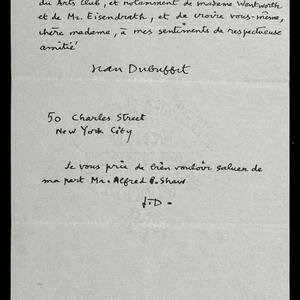 du Arts Club, et notamment de madame Wentworth
et de Mr. Eisendrath, et de croire vous-même,
chère madame, à mes sentiments de respectueuse
amitié
Jean Dubuffet
50 Charles Street
New York City
Je vous prie de bien vouloir saluer de
ma part Mr. Alfred P. Shaw
J.D.